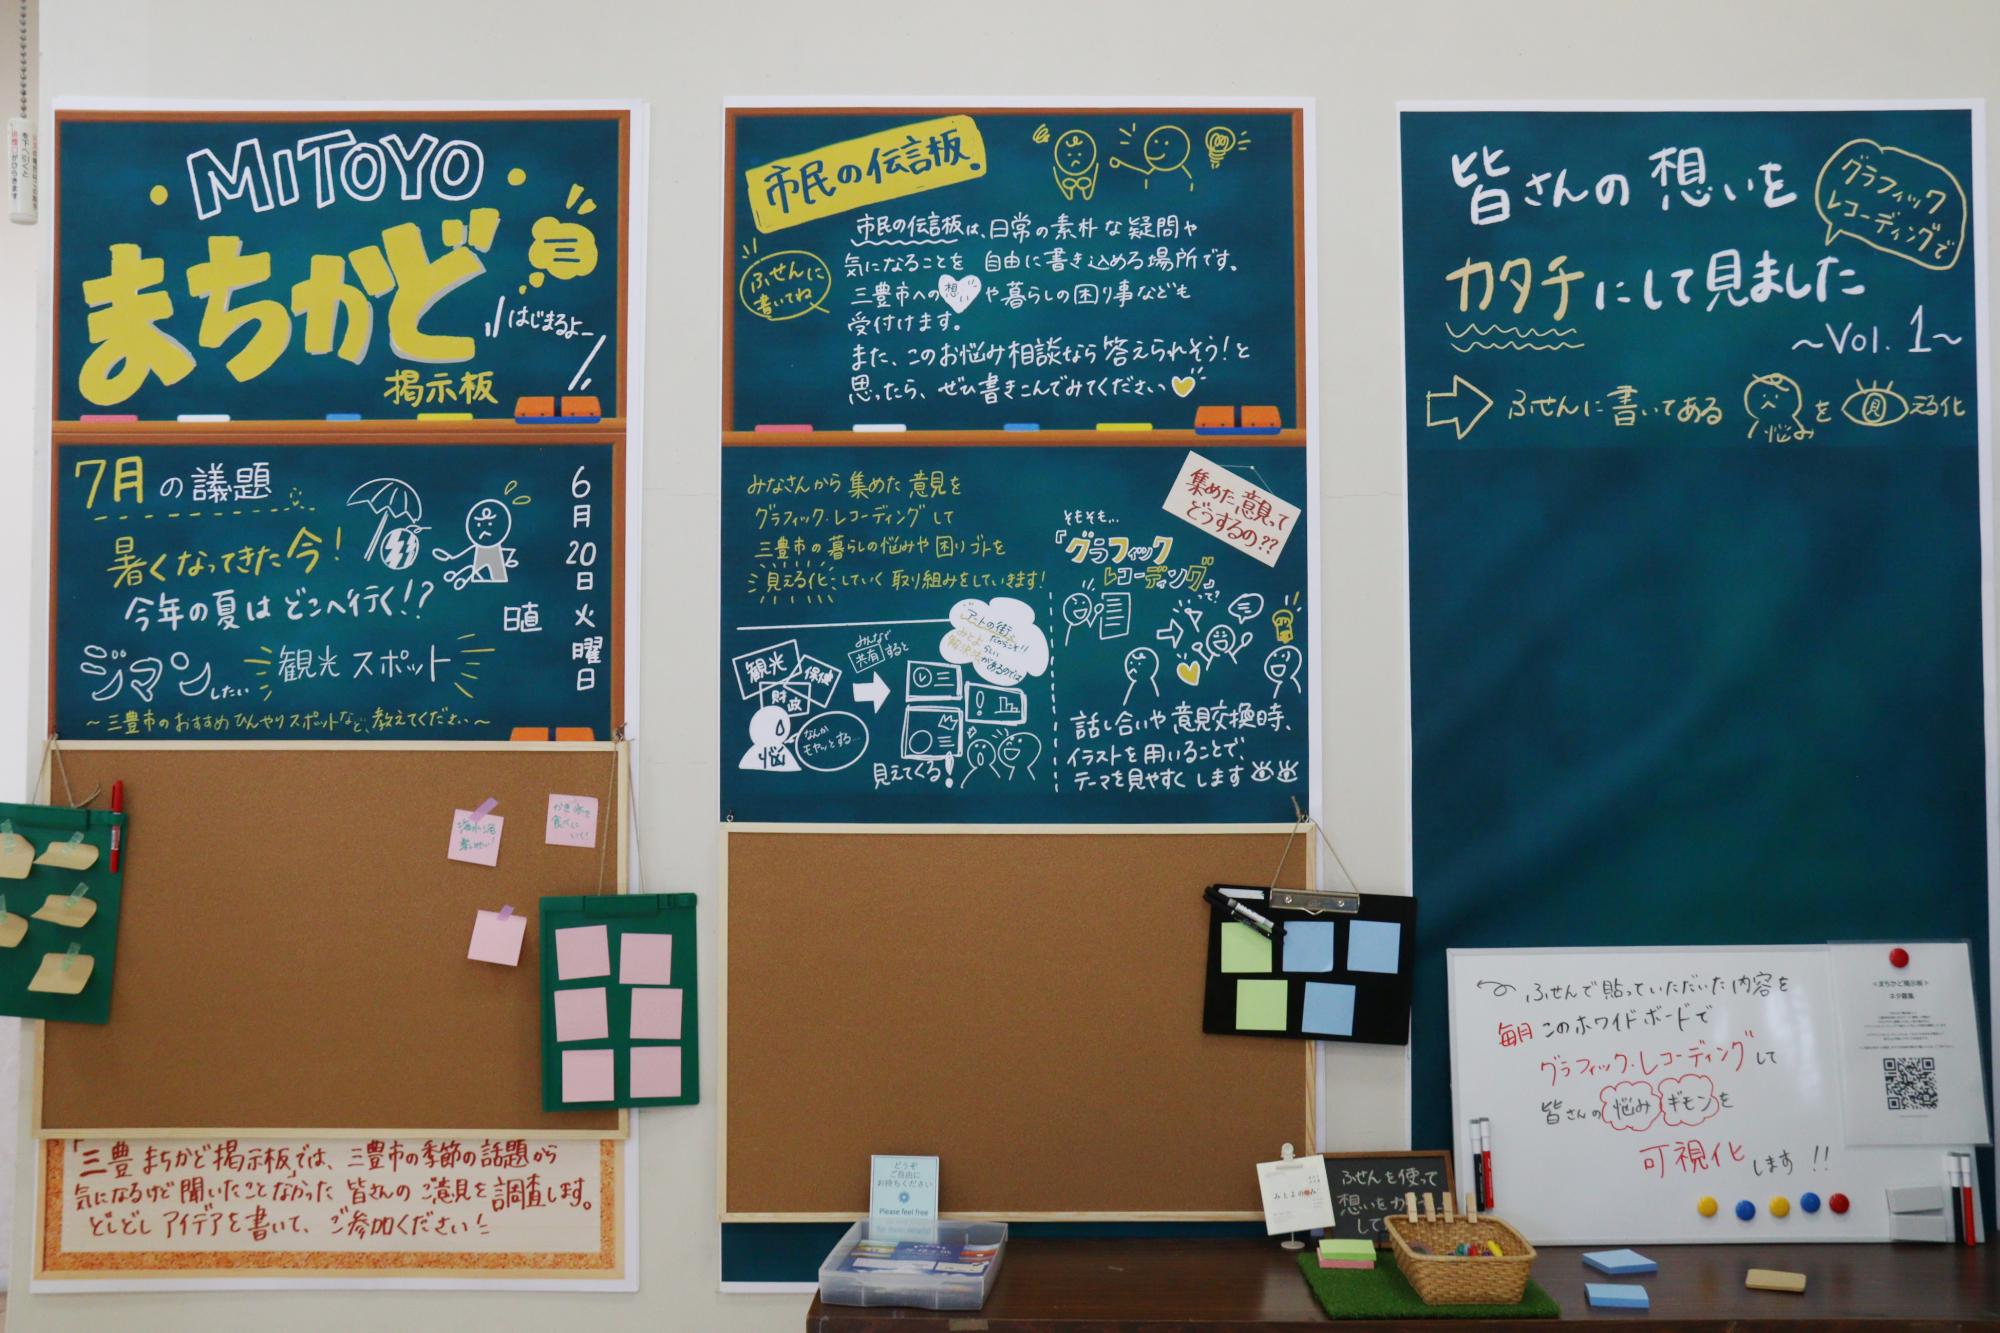 MITOYO
まちかど
掲示板
はじまるよー
7月の議題
暑くなってきた今!
今年の夏はどこへ行く!?
ジマンしたい 観光スポット
～三豊市のおすすめひんやりスポットなど、教えてください～
6月20日火曜日
日直
かき氷を
食べに
いく!
「三豊まちかど掲示板」では、三豊市の季節の話題から
気になるけど聞いたことなかった皆さんのご意見を調査します。
どしどしアイデアを書いて、ご参加ください!
市民の伝言板。
ふせんに
書いてね
市民の伝言板は、日常の素朴な疑問や
気になることを 自由に書き込める場所です。
三豊市への想いや暮らしの困り事なども
受付けます。
また、このお悩み相談なら答えられそう!と
思ったら、ぜひ書きこんでみてくださいっ
みなさんから集めた意見を
グラフィック・レコーディングして
三豊市の暮らしの悩みや困りゴトを
見える化していく取り組みをしていきます!
集めた意見って
どうするの??
そもそも…
『グラフィック
レコーディング』って?
観光
保健
財政
悩
なんか
モヤッとする…
みんなで
共有すると
アートの街
だからこそ!!
みとよらしい
解決法があるのでは
見えてくる!
話し合いや意見交換時、
イラストを用いることで、
テーマを見やすくします
皆さんの想いを
グラフィック
レコーディングで
カタチにして見ました
～Vol. 1～
ふせんに書いてある 悩みを 見える化
ふせんで貼っていただいた内容を
毎月このホワイドボードで
グラフィック・レコーディングして
皆さんの悩みギモンを
可視化します!!
<まちかど掲示板>
ネタ募集
どうぞ
ご自由に
お持ちください
Please feel free
ふせんを使って